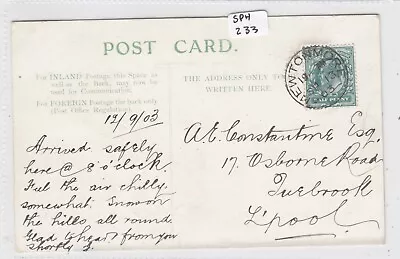 SPH
233
POST CARD.
For INLAND Postage this Space as
well as the Back, may now be
used for Communication.
For FOREIGN Postage the back only.
(Post Office Regulations).
THE ADDRESS ONLY TO
WRITTEN HERE.
NEWTONMORE
HALFPENNY
12/9/03
Arrived safely
here @ 8 o'clock.
Feel the air chilly
somewhat. Snow on
the hills all round.
Glad to hear from you
shortly
A. E. Constantine Esq.
17. Osborne Road
Tuebrook
L'pool.